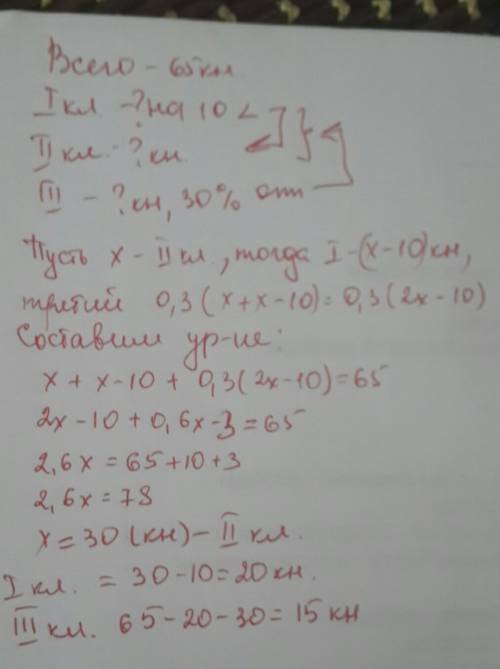 Всего - 65 кн
I кл - ? на 10 <
II кл - ? кн
III - ? кн, 30% от
Пусть x - II кл, тогда I - (x-10) кн,
третий 0,3(x+x-10)=0,3(2x-10)
Составим ур-ие:
x+x-10+0,3(2x-10)=65
2x-10+0,6x-3=65
2,6x=65+10+3
2,6x=78
x=30 (кн) - II кл.
I кл. = 30-10=20 кн.
III кл. 65-20-30=15 кн